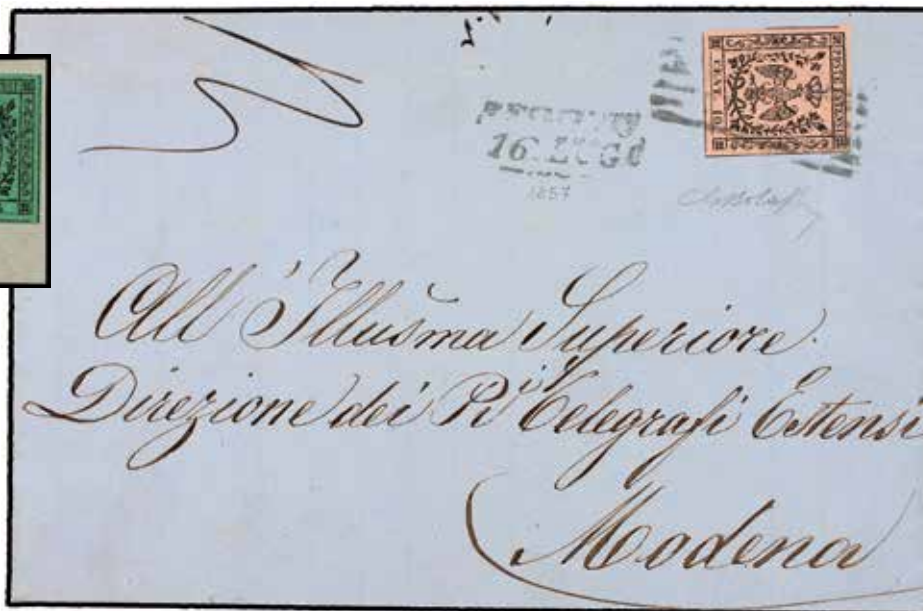 16. LUGo
1857
All'Illus̃ma Superiore
Direzione dei Ri Telegrafi Estensi
Modena